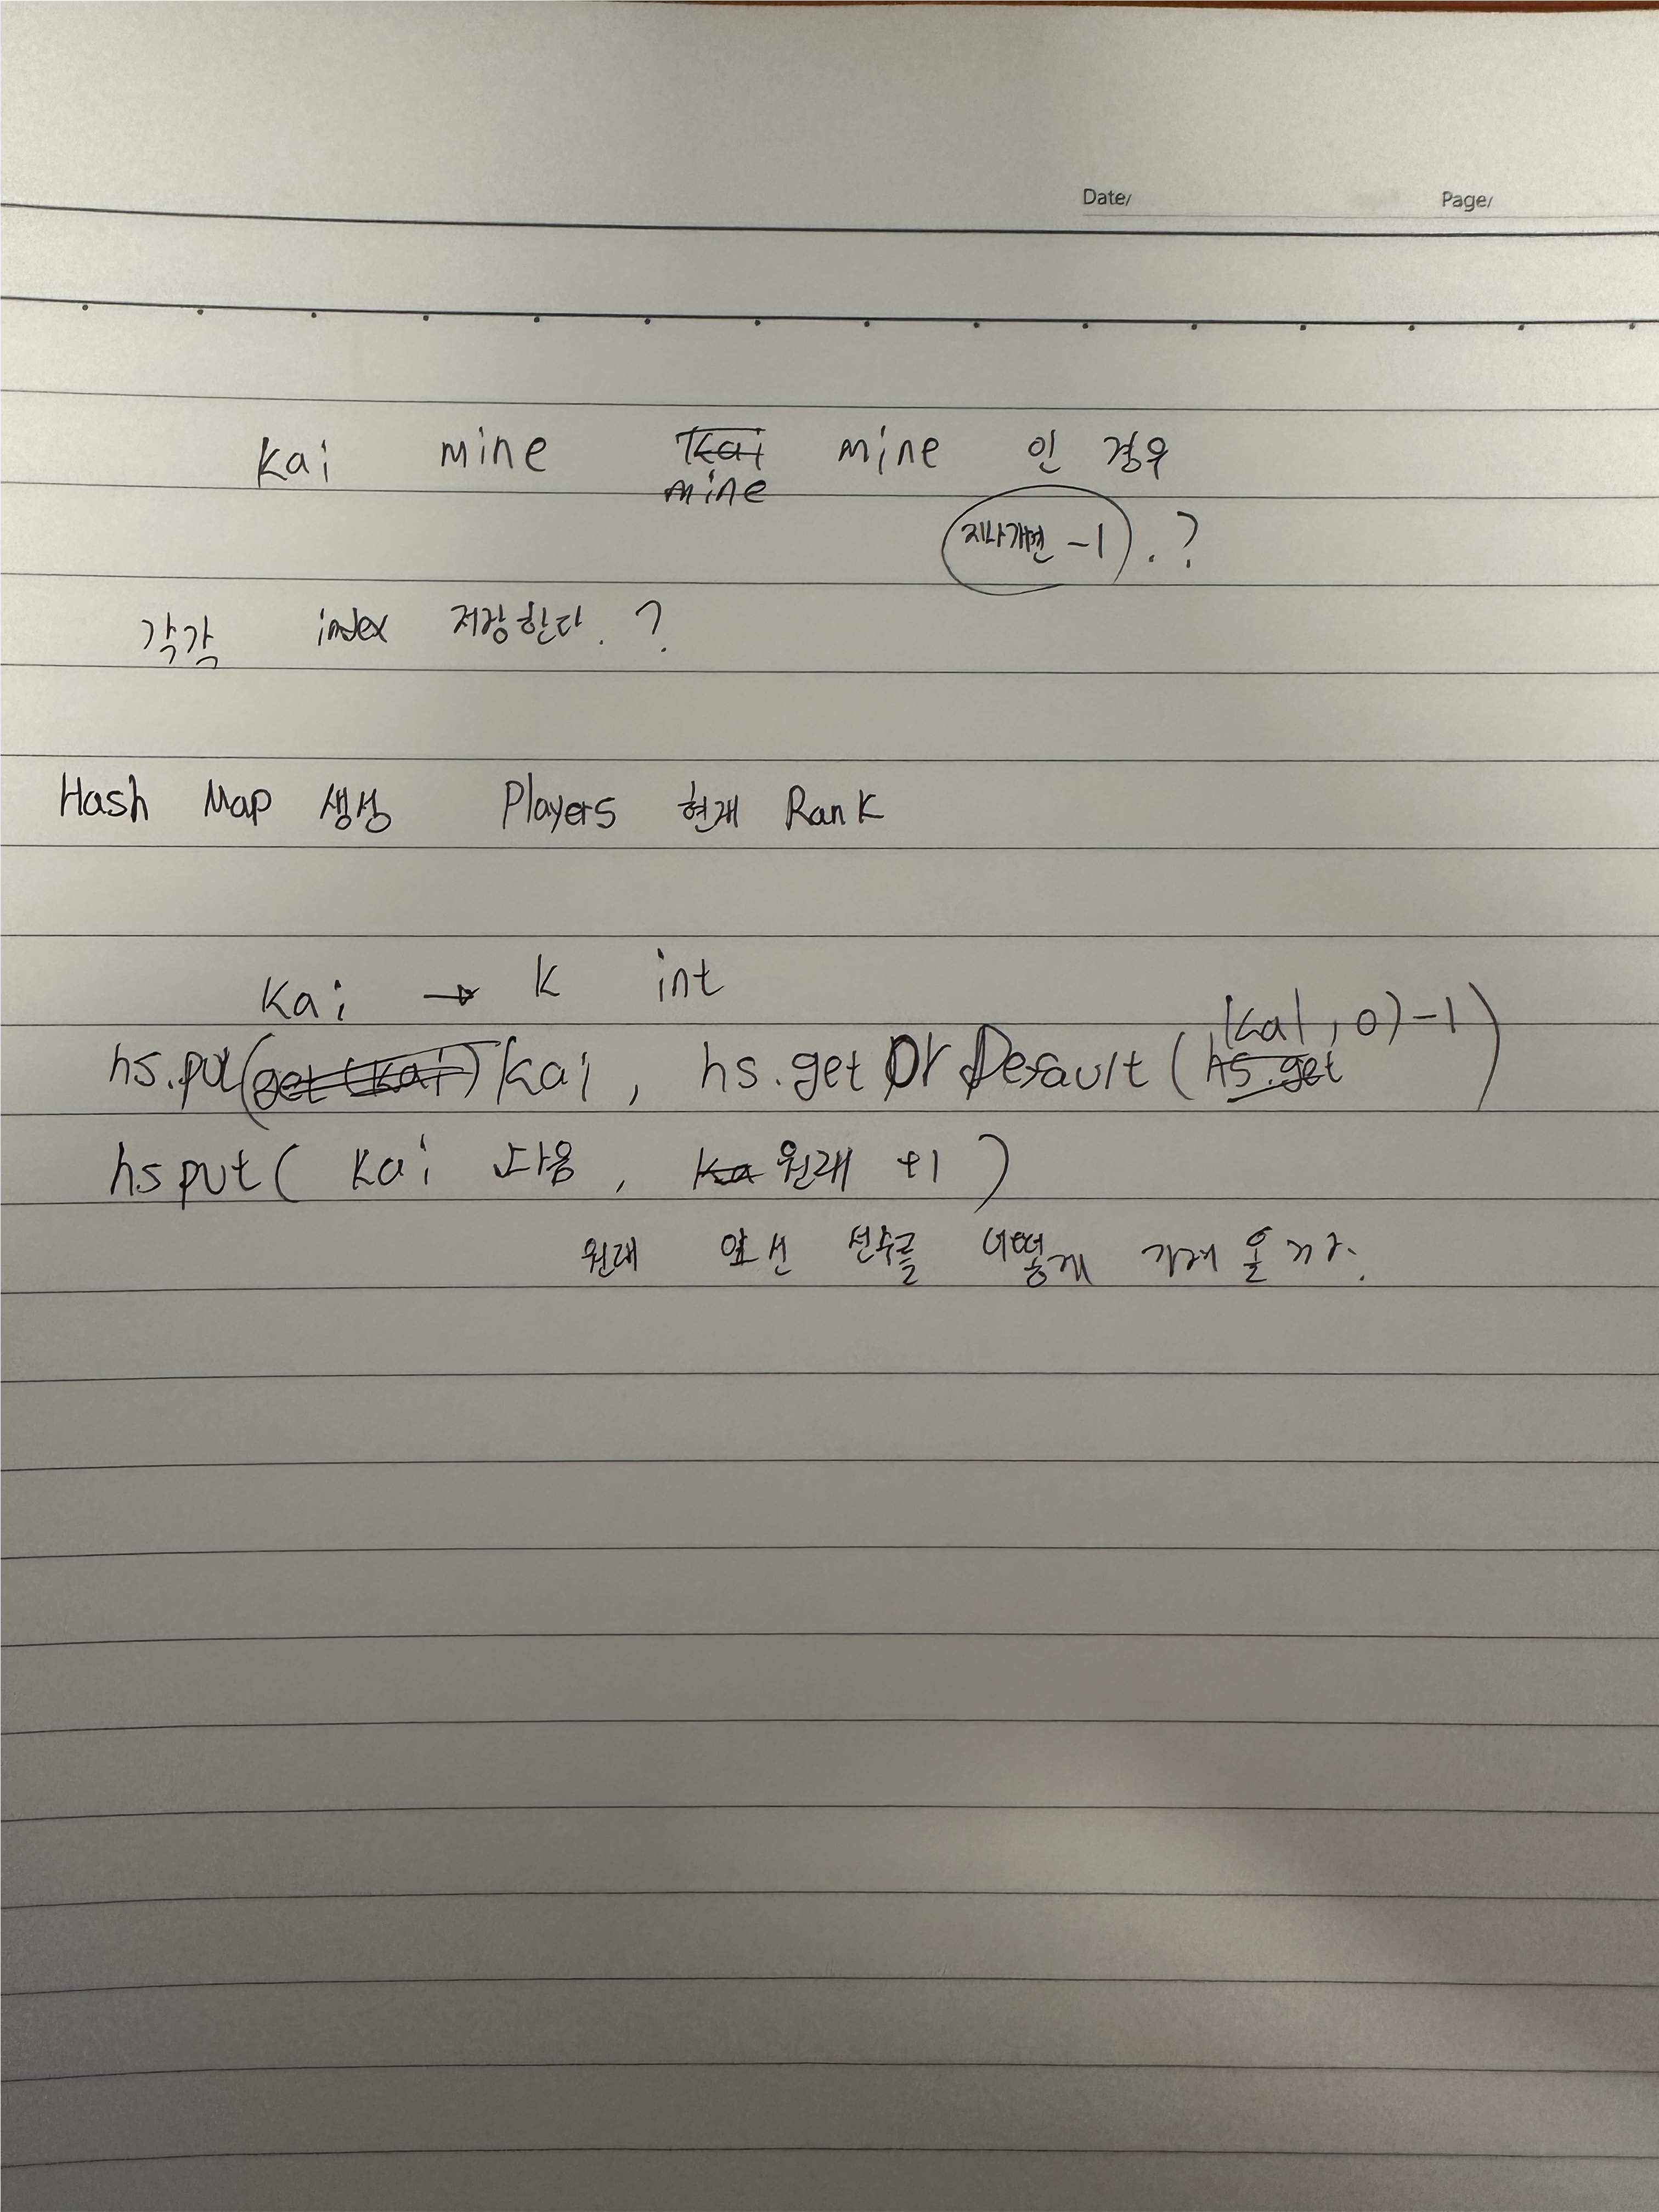 Date/ Page/
Kai mine Kai mine 인 경우
mine
지나가면 -1 . ?
각각 index 저장한다. ?
Hash Map 생성 Players 현재 Rank
Kai → K int
(Kai, 0) -1)
hs.put(get(Kai) Kai, hs.getOrDefault(hs.get
hs put( Kai 다음, Ka 원래 +1 )
원래 앞선 선수를 어떻게 가져 올지.